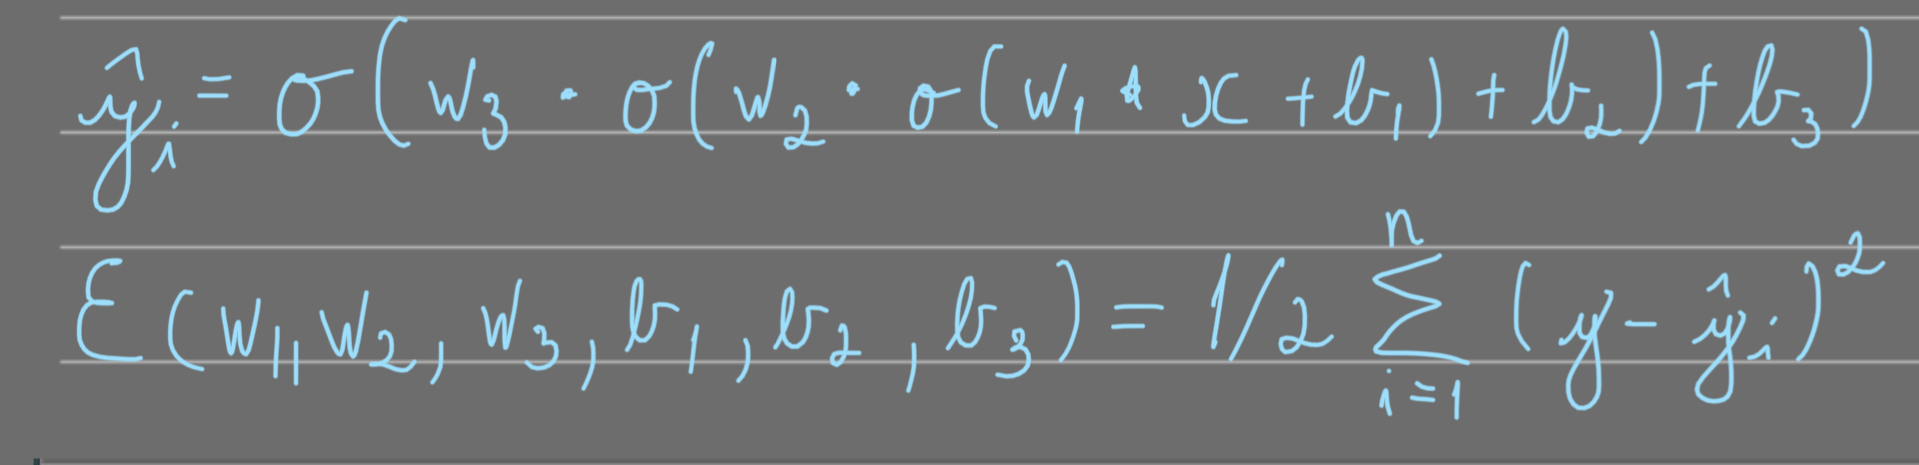 ŷᵢ = σ(w₃ · σ(w₂ · σ(w₁ · x + b₁) + b₂) + b₃)
E(w₁, w₂, w₃, b₁, b₂, b₃) = 1/2 ∑ⁿᵢ₌₁ (y - ŷᵢ)²